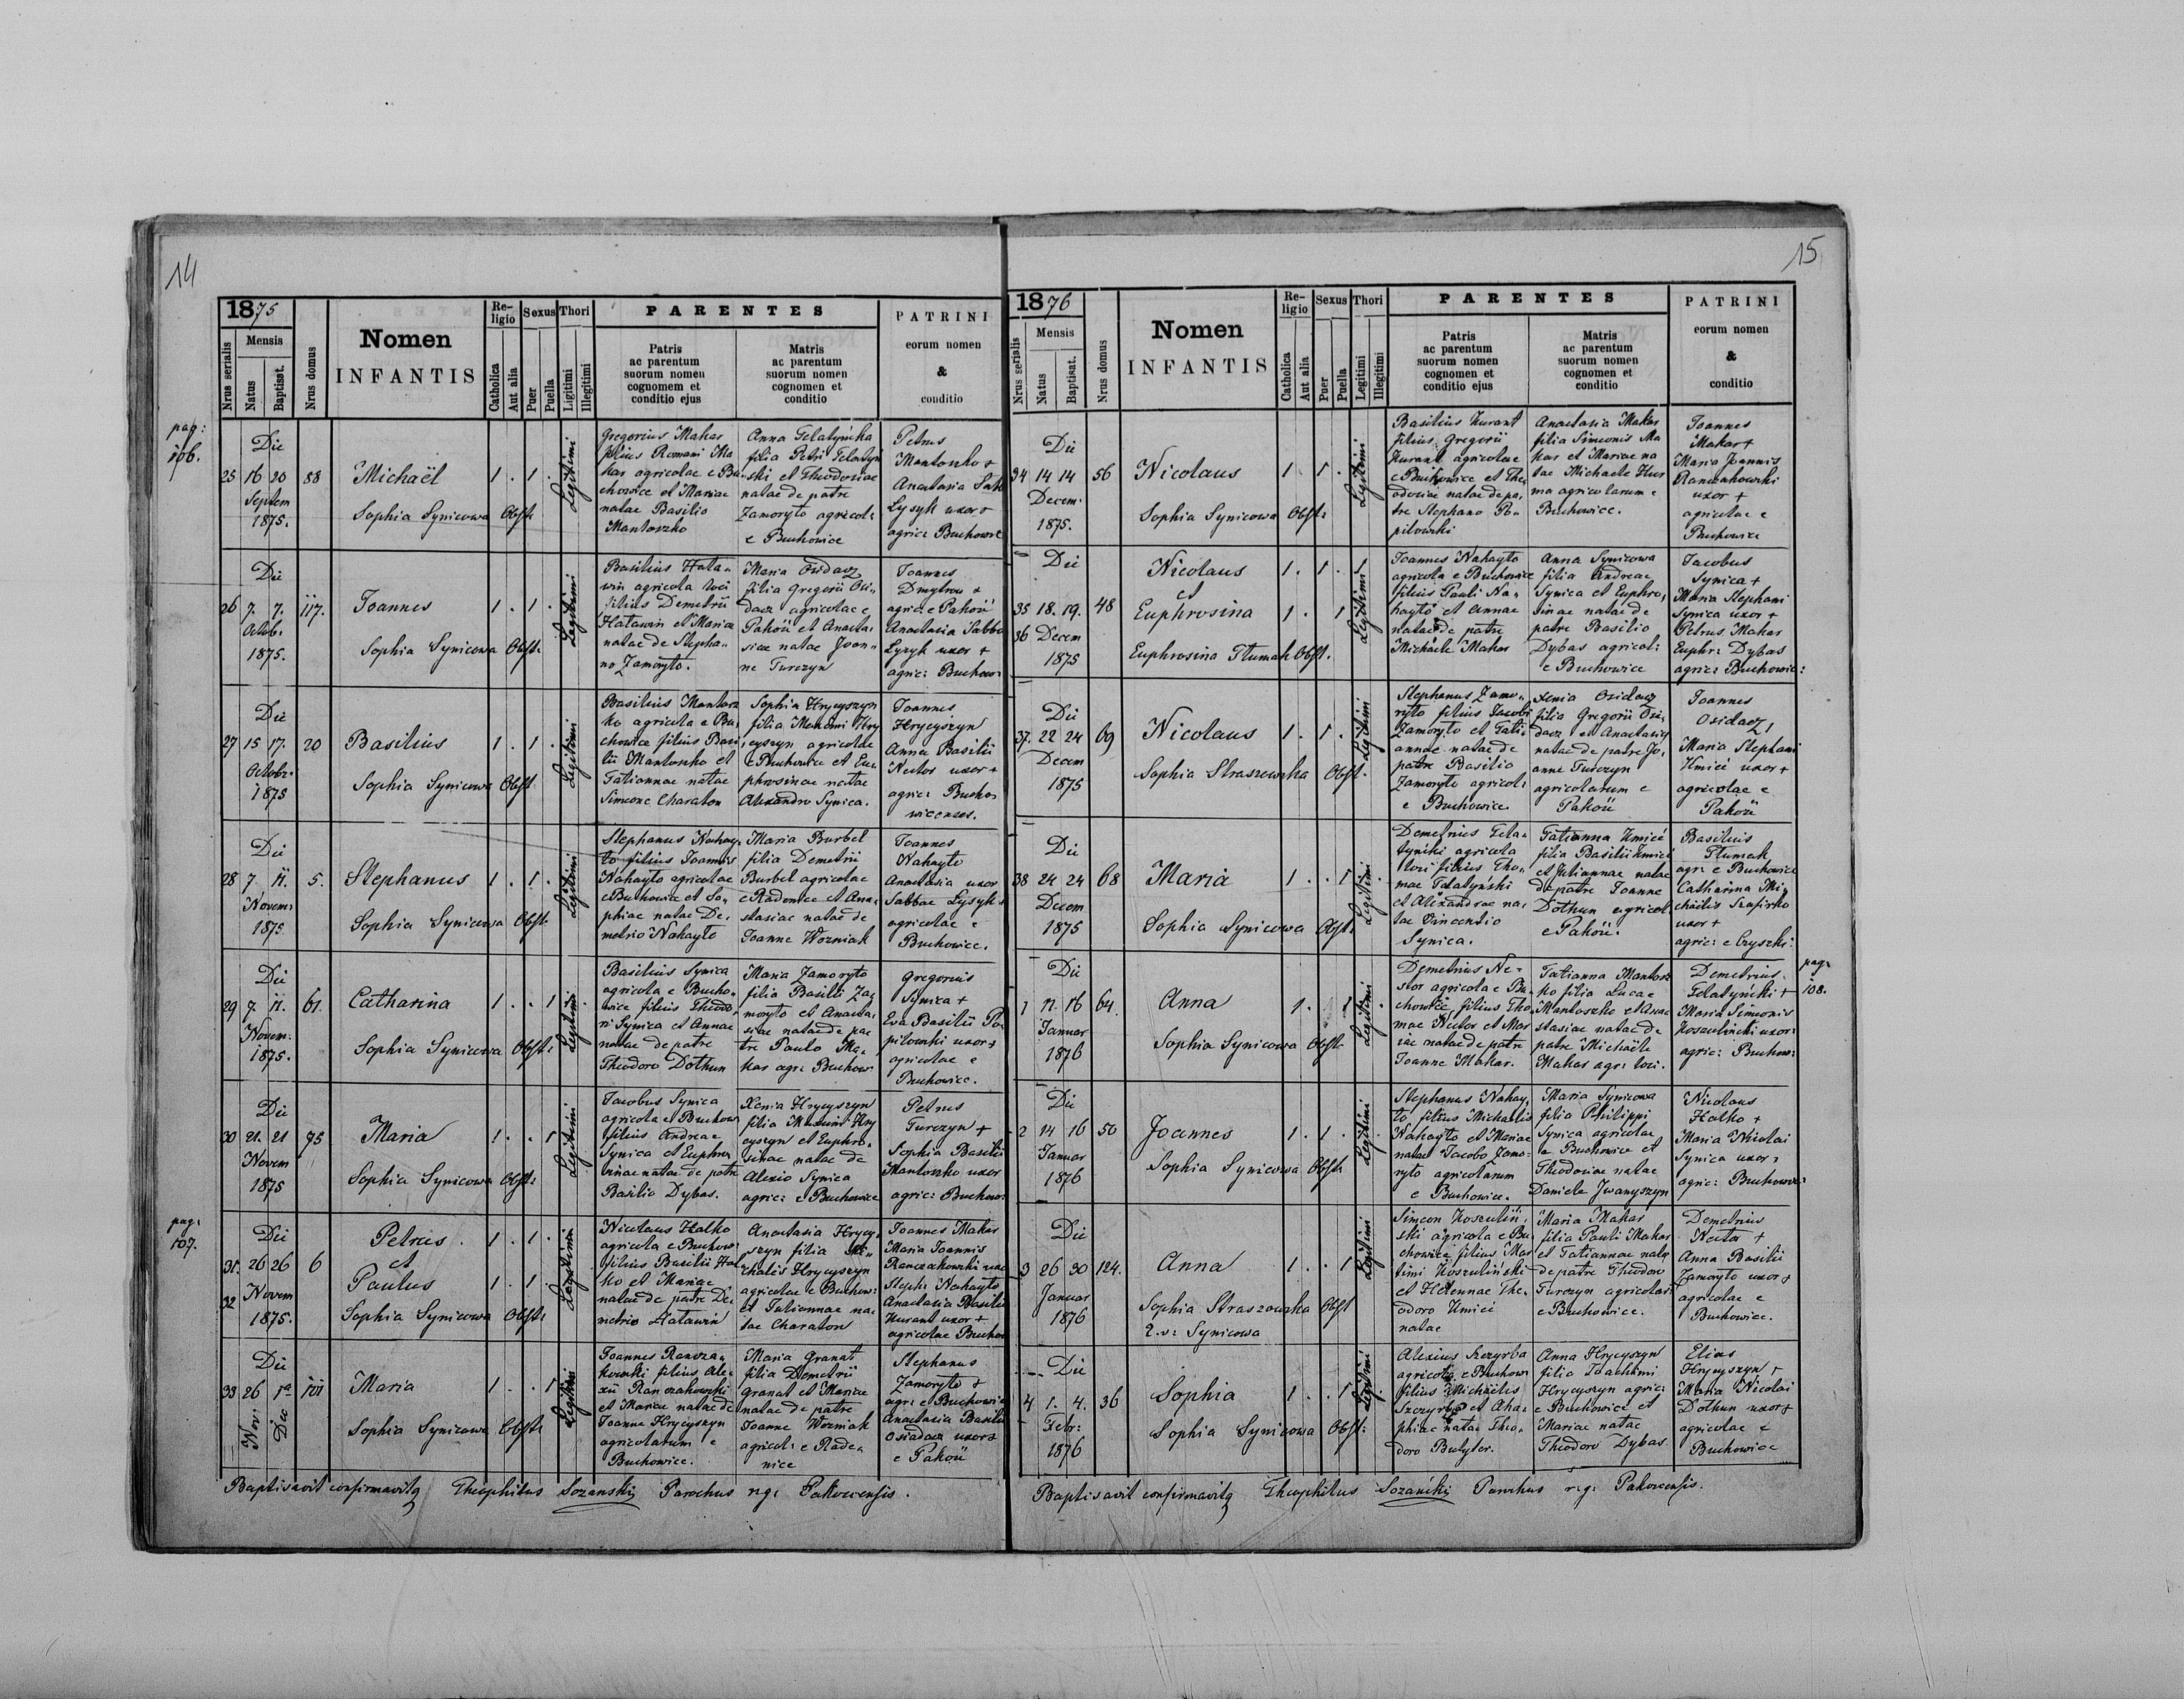 14
1875
Nrus serialis
Mensis
Natus
Baptisat.
Nrus domus
Nomen
INFANTIS
Religio
Catholica
Aut alia
Sexus
Puer
Puella
Thori
Ligitimi
Illegitimi
PARENTES
Patris
ac parentum
suorum nomen
cognomem et
conditio ejus
Matris
ac parentum
suorum nomen
cognomen et
conditio
PATRINI
eorum nomen
&
conditio
pag:
106.
25
Die
16 20
Septem
1875.
88
Michaël
Sophia Synicowa Obst:
1 . 1 .
Legitimi
Gregorius Makar
filius Romani Ma
kar agricolae e Bu
chowice et Mariae
natae Basilio
Mantoszko
Anna Telatyńcka
filia Petri Telatyń
ski et Theodosiae
natae de patre
Zamoryto agricol:
e Buchowice
Petrus
Mantoszko +
Anastasia
Lysyk uxor +
agric: Buchowice
26
Die
7. 7.
Octob:
1875.
117.
Joannes
Sophia Synicowa Obst:
1 . 1 .
Legitimi
Basilius Hata-
win agricola loci
filius Demetrii
Hatawin et Mariae
natae de Stepha-
no Zamoryto.
Maria Osidacz
filia Gregorii Osi-
dacz agricolae e
Pakoú et Anasta-
siae natae Joan-
ne Turczyn
Joannes
Dmytrow +
agric: e Pakoú
Anastasia Sabba
Lysyk uxor +
agric: Buchow:
27
Die
15 17.
Octobr.
1875
20
Basilius
Sophia Synicowa Obst
1 . 1 .
Legitimi
Basilius Mantosz
ko agricola e Bu
chowice filius Basi
lii Mantoszko et
Tatiannae natae
Simeone Charaton
Sophia Hrycyszyn
filia Maximi Hry
cyszyn agricolae
e Buchowice et Eu
phrosinae natae
Alexandro Synica.
Joannes
Hrycyszyn
Anna Basilii
Nestor uxor +
agric: Bucho
wicenses.
28
Die
7 11.
Novem:
1875
5.
Stephanus
Sophia Synicowa Obst.
1 . 1 .
Legitimi
Stephanus Nahay-
to filius Joannis
Nahayto agricolae
e Buchowice et So-
phiae natae De-
metrio Nahayto
Maria Burbel
filia Demetrii
Burbel agricolae
e Radenice et Ana-
stasiae natae de
Joanne Wozniak
Joannes
Nahayto
Anastasia uxor
Sabbae Lysyk +
agricolae e
Buchowice.
29
Die
7. 11.
Novem.
1875.
61.
Catharina
Sophia Synicowa Obst:
1 . . 1
Legitimi
Basilius Synica
agricola e Bucho-
wice filius Theodo-
ri Synica et Annae
natae de patre
Theodoro Dothun
Maria Zamoryto
filia Basilii Za-
moryto et Anasta-
siae natae de pa
tre Paulo Ma-
kar agr: Buchow:
Gregorius
Synica +
Eva Basilii Po-
pilowski uxor +
agricolae e
Buchowice.
30
Die
21. 21
Novem
1875
75
Maria
Sophia Synicowa Obst:
1 . . 1
Legitimi
Jacobus Synica
agricola e Buchow
filius Andreae
Synica et Euphro
sinae natae de patre
Basilio Dybas.
Xenia Hrycyszyn
filia Maximi Hry
cyszyn et Euphro-
sinae natae de
Alexio Synica
agric: e Buchowice
Petrus
Turczyn +
Sophia Basilii
Mantoszko uxor
agric: Buchow:
pag:
107.
31.
32
Die
26 26
Novem
1875.
6
Petrus
et
Paulus
Sophia Synicowa Obst:
1 . 1 .
1 . 1
Legitimi
Nicolaus Halko
agricola e Buchow:
filius Basilii Hal
ko et Mariae
natae de patre De-
metrio Hatawin
Anastasia Hrycy-
szyn filia Mi-
chalis Hrycyszyn
agricolae e Buchow:
et Tatiannae na
tae Charaton
Joannes Makar
Maria Joannis
Ranczakowski uxor
Steph: Nahayto
Anastasia Basilii
Kurant uxor +
agricolae Buchow
33
Die
26 1a
Nov: Dec
101
Maria
Sophia Synicowa Obst:
1 . . 1
Legitimi
Joannes Rancza-
kowski filius Ale-
xii Ranczakowski
et Mariae natae de
Joanne Hrycyszyn
agricolarum e
Buchowice.
Maria Granat
filia Demetrii
Granat et Mariae
natae de patre
Joanne Wozniak
agricol: e Rade-
nice
Stephanus
Zamoryto +
agr: e Buchowice
Anastasia Basilii
Osiadacz uxor +
e Pakoú
Baptisavit confirmavitq Theophilus Sozanski Parochus r.g: Pakoscensis.
15
1876
Nrus serialis
Mensis
Natus
Baptisat.
Nrus domus
Nomen
INFANTIS
Religio
Catholica
Aut alia
Sexus
Puer
Puella
Thori
Legitimi
Illegitimi
PARENTES
Patris
ac parentum
suorum nomen
cognomen et
conditio ejus
Matris
ac parentum
suorum nomen
cognomen et
conditio
PATRINI
eorum nomen
&
conditio
34
Die
14 14
Decem:
1875.
56
Nicolaus
Sophia Synicowa Obst:
1 . 1 .
Legitimi
Basilius Kurant
filius Gregorii
Kurant agricolae
e Buchowice et The
odosiae natae de pa-
tre Stephano Po-
pilowski
Anastasia Makar
filia Simeonis Ma
kar et Mariae na
tae Michaele Hur
ma agricolarum e
Buchowice.
Joannes
Makar +
Maria Joannis
Ranczakowski
uxor +
agricolae e
Buchowice
35
36
Die
18. 19.
Decem
1875
48
Nicolaus
et
Euphrosina
Euphrosina Tlumak Obst.
1 . 1 .
1 . 1
Legitimi
Joannes Nahayto
agricola e Buchowice
filius Pauli Na-
hayto et Annae
natae de patre
Michaele Makar
Anna Synicowa
filia Andreae
Synica et Euphro-
sinae natae de
patre Basilio
Dybas agricol:
e Buchowice
Jacobus
Synica +
Maria Stephani
Synica uxor +
Petrus Makar
Euphr: Dybas
agric: Buchowice:
37.
Die
22 24
Decem
1875
69
Nicolaus
Sophia Straszewska Obst.
1 . 1 .
Legitimi
Stephanus Zamo-
ryto filius Jacobi
Zamoryto et Tati-
annae natae de
patre Basilio
Zamoryto agricol:
e Buchowice
Xenia Osidacz
filia Gregorii Osi-
dacz et Anastasiae
natae de patre Jo-
anne Turczyn
agricolarum e
Pakoú
Joannes
Osidacz,
Maria Stephani
Kmieć uxor +
agricolae e
Pakoú
38
Die
24 24
Decem
1875
68
Maria
Sophia Synicowa Obst:
1 . . 1
Legitimi
Demetrius Tela-
tyński agricola
loci filius Tho-
mae Telatyński
et Alexandrae na-
tae Vincentio
Synica.
Tatianna Kmieć
filia Basilii Kmieć
et Julianae natae
de patre Joanne
Dothun agricol:
e Pakoú.
Basilius
Tlumak
agr: e Buchowice
Catharina Mi-
chaelis
uxor +
agric: e Cyszki:
pag:
108.
1
Die
11. 16
Januar
1876
64.
Anna
Sophia Synicowa Obst:
1 . . 1
Legitimi
Demetrius Ne-
stor agricola e Bu-
chowice, filius Tho-
mae Nestor et Mar
iae natae de patre
Joanne Makar.
Tatianna Mantosz
ko filia Lucae
Mantoszko et Ana
stasiae natae de
patre Michaele
Makar agr: loci.
Demetrius
Telatyński +
Maria Simeonis
Koszuliński uxor:
agric: Buchow:
2
Die
14 16
Januar
1876
50
Joannes
Sophia Synicowa Obst:
1 . 1 .
Legitimi
Stephanus Nahay-
to filius Michaelis
Nahayto et Mariae
natae Jacobo Zamo-
ryto agricolarum
e Buchowice.
Maria Synicowa
filia Philippi
Synica agricolae
e Buchowice et
Theodosiae natae
Daniele Jwanyszyn
Nicolaus
Halko +
Maria Nicolai
Synica uxor:
agric: Buchowice:
3
Die
26 30
Januar
1876
124.
Anna
Sophia Straszowska Obst
2.v: Synicowa
1 . . 1
Legitimi
Simeon Koszuliń-
ski agricola e Bu
chowice filius Max
simi Koszuliński
et Helennae The-
odoro Kmieć
natae
Maria Makar
filia Pauli Makar
et Tatiannae natae
de patre Theodoro
Turczyn agricolar:
e Buchowice.
Demetrius
Nestor +
Anna Basilii
Zamoryto uxor +
agricolae e
Buchowice.
4
Die
1. 4.
Febr:
1876
36
Sophia
Sophia Synicowa Obst:
1 . . 1
Legitimi
Alexius Szczyrba
agricola e Buchow
filius Michaelis
Szczyrba et Aha-
phiae natae Theo-
doro Butyter.
Anna Hrycyszyn
filia Joachimi
Hrycyszyn agric:
e Buchowice et
Mariae natae
Theodoro Dybas.
Elias
Hrycyszyn +
Maria Nicolai
Dothun uxor +
agricolae e
Buchowice
Baptisavit confirmavitq Theophilus Sozański Parochus r.g: Pakoscensis.